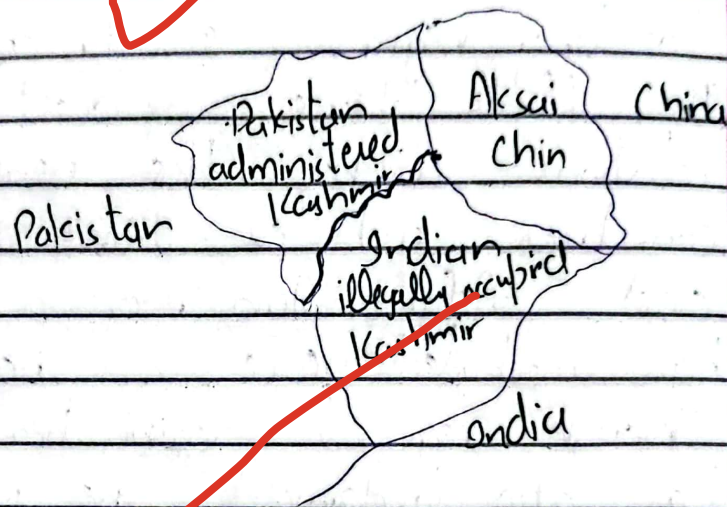 Pakistan
administered
Kashmir
Aksai
Chin
China
Pakistan
Indian
illegally occupied
Kashmir
India